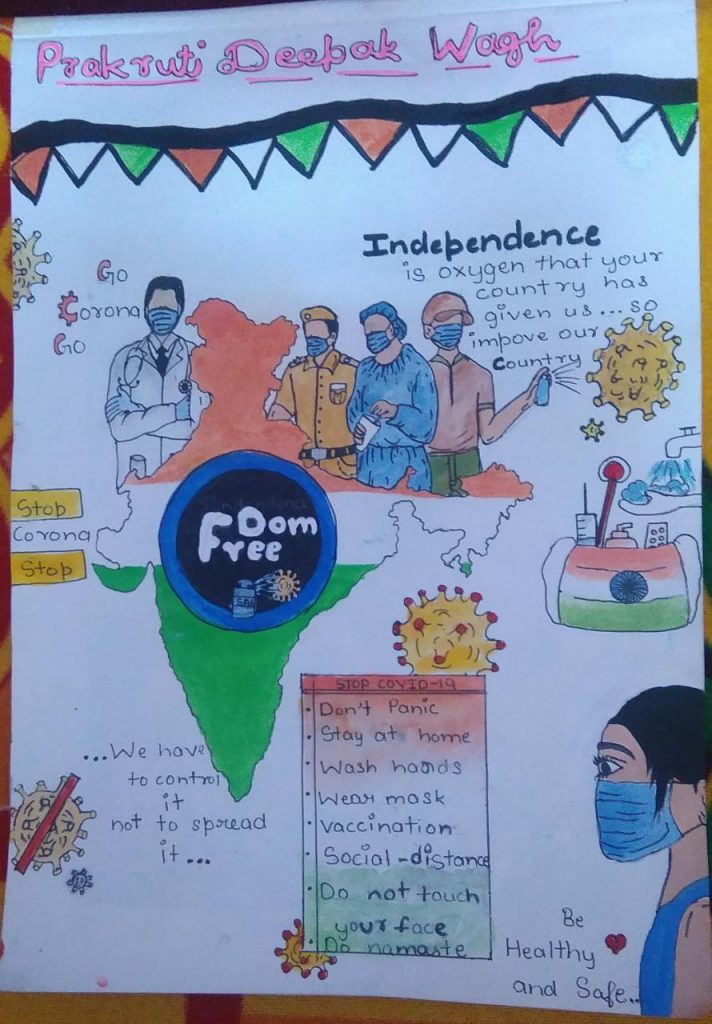 Prakruti Deepak Wagh
Independence
is oxygen that your
country has
given us... so
impove our
Country
Go
Corona
Go
Stop
Corona
Stop
Free
Dom
STOP COVID-19
• Don't Panic
• Stay at home
• Wash hands
• Wear mask
• Vaccination
• Social-distance
• Do not touch
your face
• Do namaste
...We have
to control
it
not to spread
it...
Be
Healthy
and Safe..